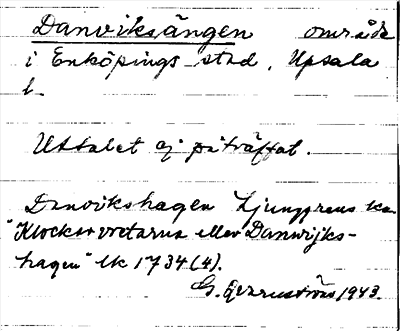 Danviksängen område
i Enköpings stad, Upsala
l.
Uttalet ej påträffat.
Danvikshagen Ljunggrens ka.
"Klockarvretarna eller Danwijks-
hagen" lk 1734(4).
G. 1943.